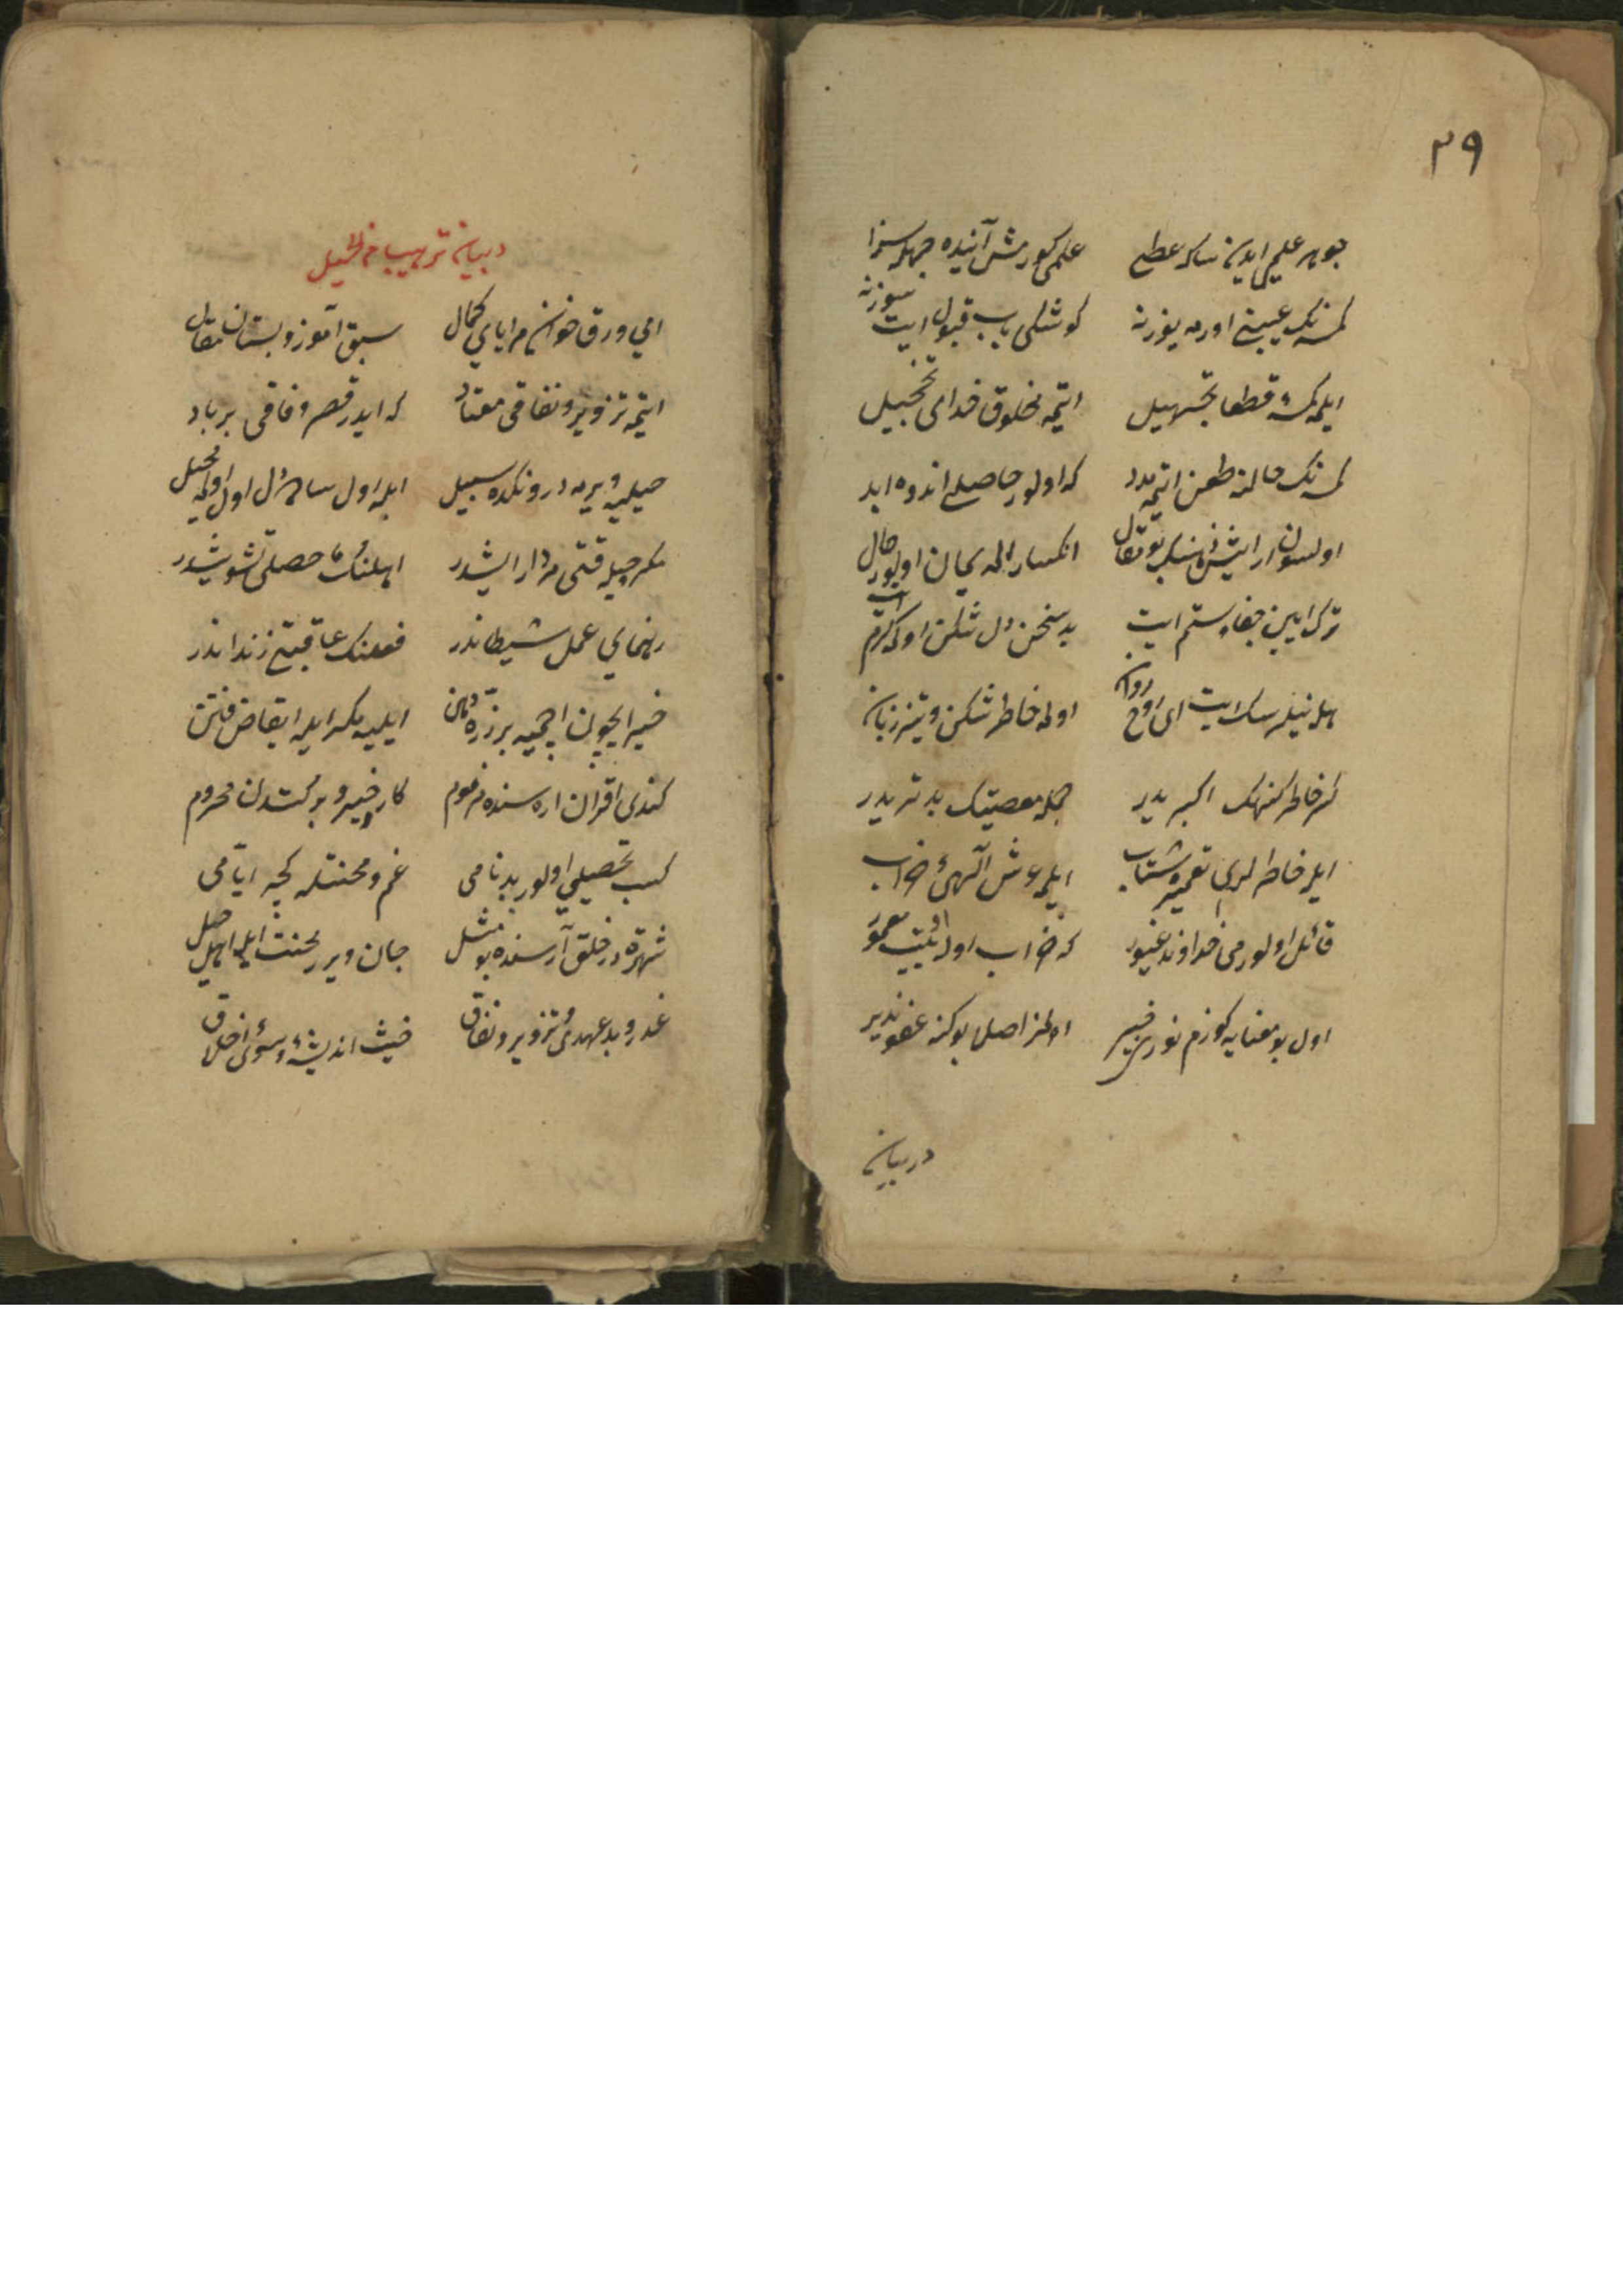 ٣٩
جوهر علمی ایدن سكا عطا علمی كورمش آنیده جهله سزا
كمسه نك عیبنی اورمه یوزنه كوشكی باب قبول ایت سوزنه
ایلمه كمسه ئی قطعا تجهیل ایتمه مخلوق خدایی تخجیل
كمسه نك حالنه طعن ایتمه مدد كه اولور حاصلی اندوه ابد
اولسون ارایش ذهنك بو مقال انكسار ایله یمان اولور حال
ترك ایین جفا و ستم ایت بد سخن دل شكن اولمه كرم ایت
هله نیلرسك ایت ای روح روان اولمه خاطر شكن و تیز زبان
كسر خاطر كنهك اكبریدر جمله معصیتك بدتریدر
ایله خاطرلری تعمیره شتاب ایلمه عرش الهی ئی خراب
قائل اولورمی خداوند غیور كه خراب اوله او بیت معمور
اول بو معنایه كوزم نوری خبیر اولنمز اصلا بو كنه عفو پذیر
دربیان
دربیان ترهیب از حیل
ای ورق خوان مرایای كمال سبق آموز دبستان مقال
ایتمه تزویر و نفاقی معتاد كه ایدر قصر وفاقی برباد
حیلیه ویرمه درونكده سبیل ایله اول سائل اول اولمه محیل
مكر حیله قتی مردار ایشدر اهلنك حاصلی تشویشدر
رهنمای عمل شیطاندر فعلنك عاقبتی زنداندر
خیر ایچون اچمیه بر ذره دهن ایلیه مكر ایله ایقاض فتن
كندی اقران اره سنده مذموم كار خیر و بركتدن محروم
كسب تحصیلی اولور بدنامی غم و محنتله كچه ایامی
شهرتی در خلق آرسنده بو مثل جان ویرر محنت ایله اهل حیل
غدر و بد عهدی و تزویر و نفاق خبث اندیشه و سوئی اخلاق